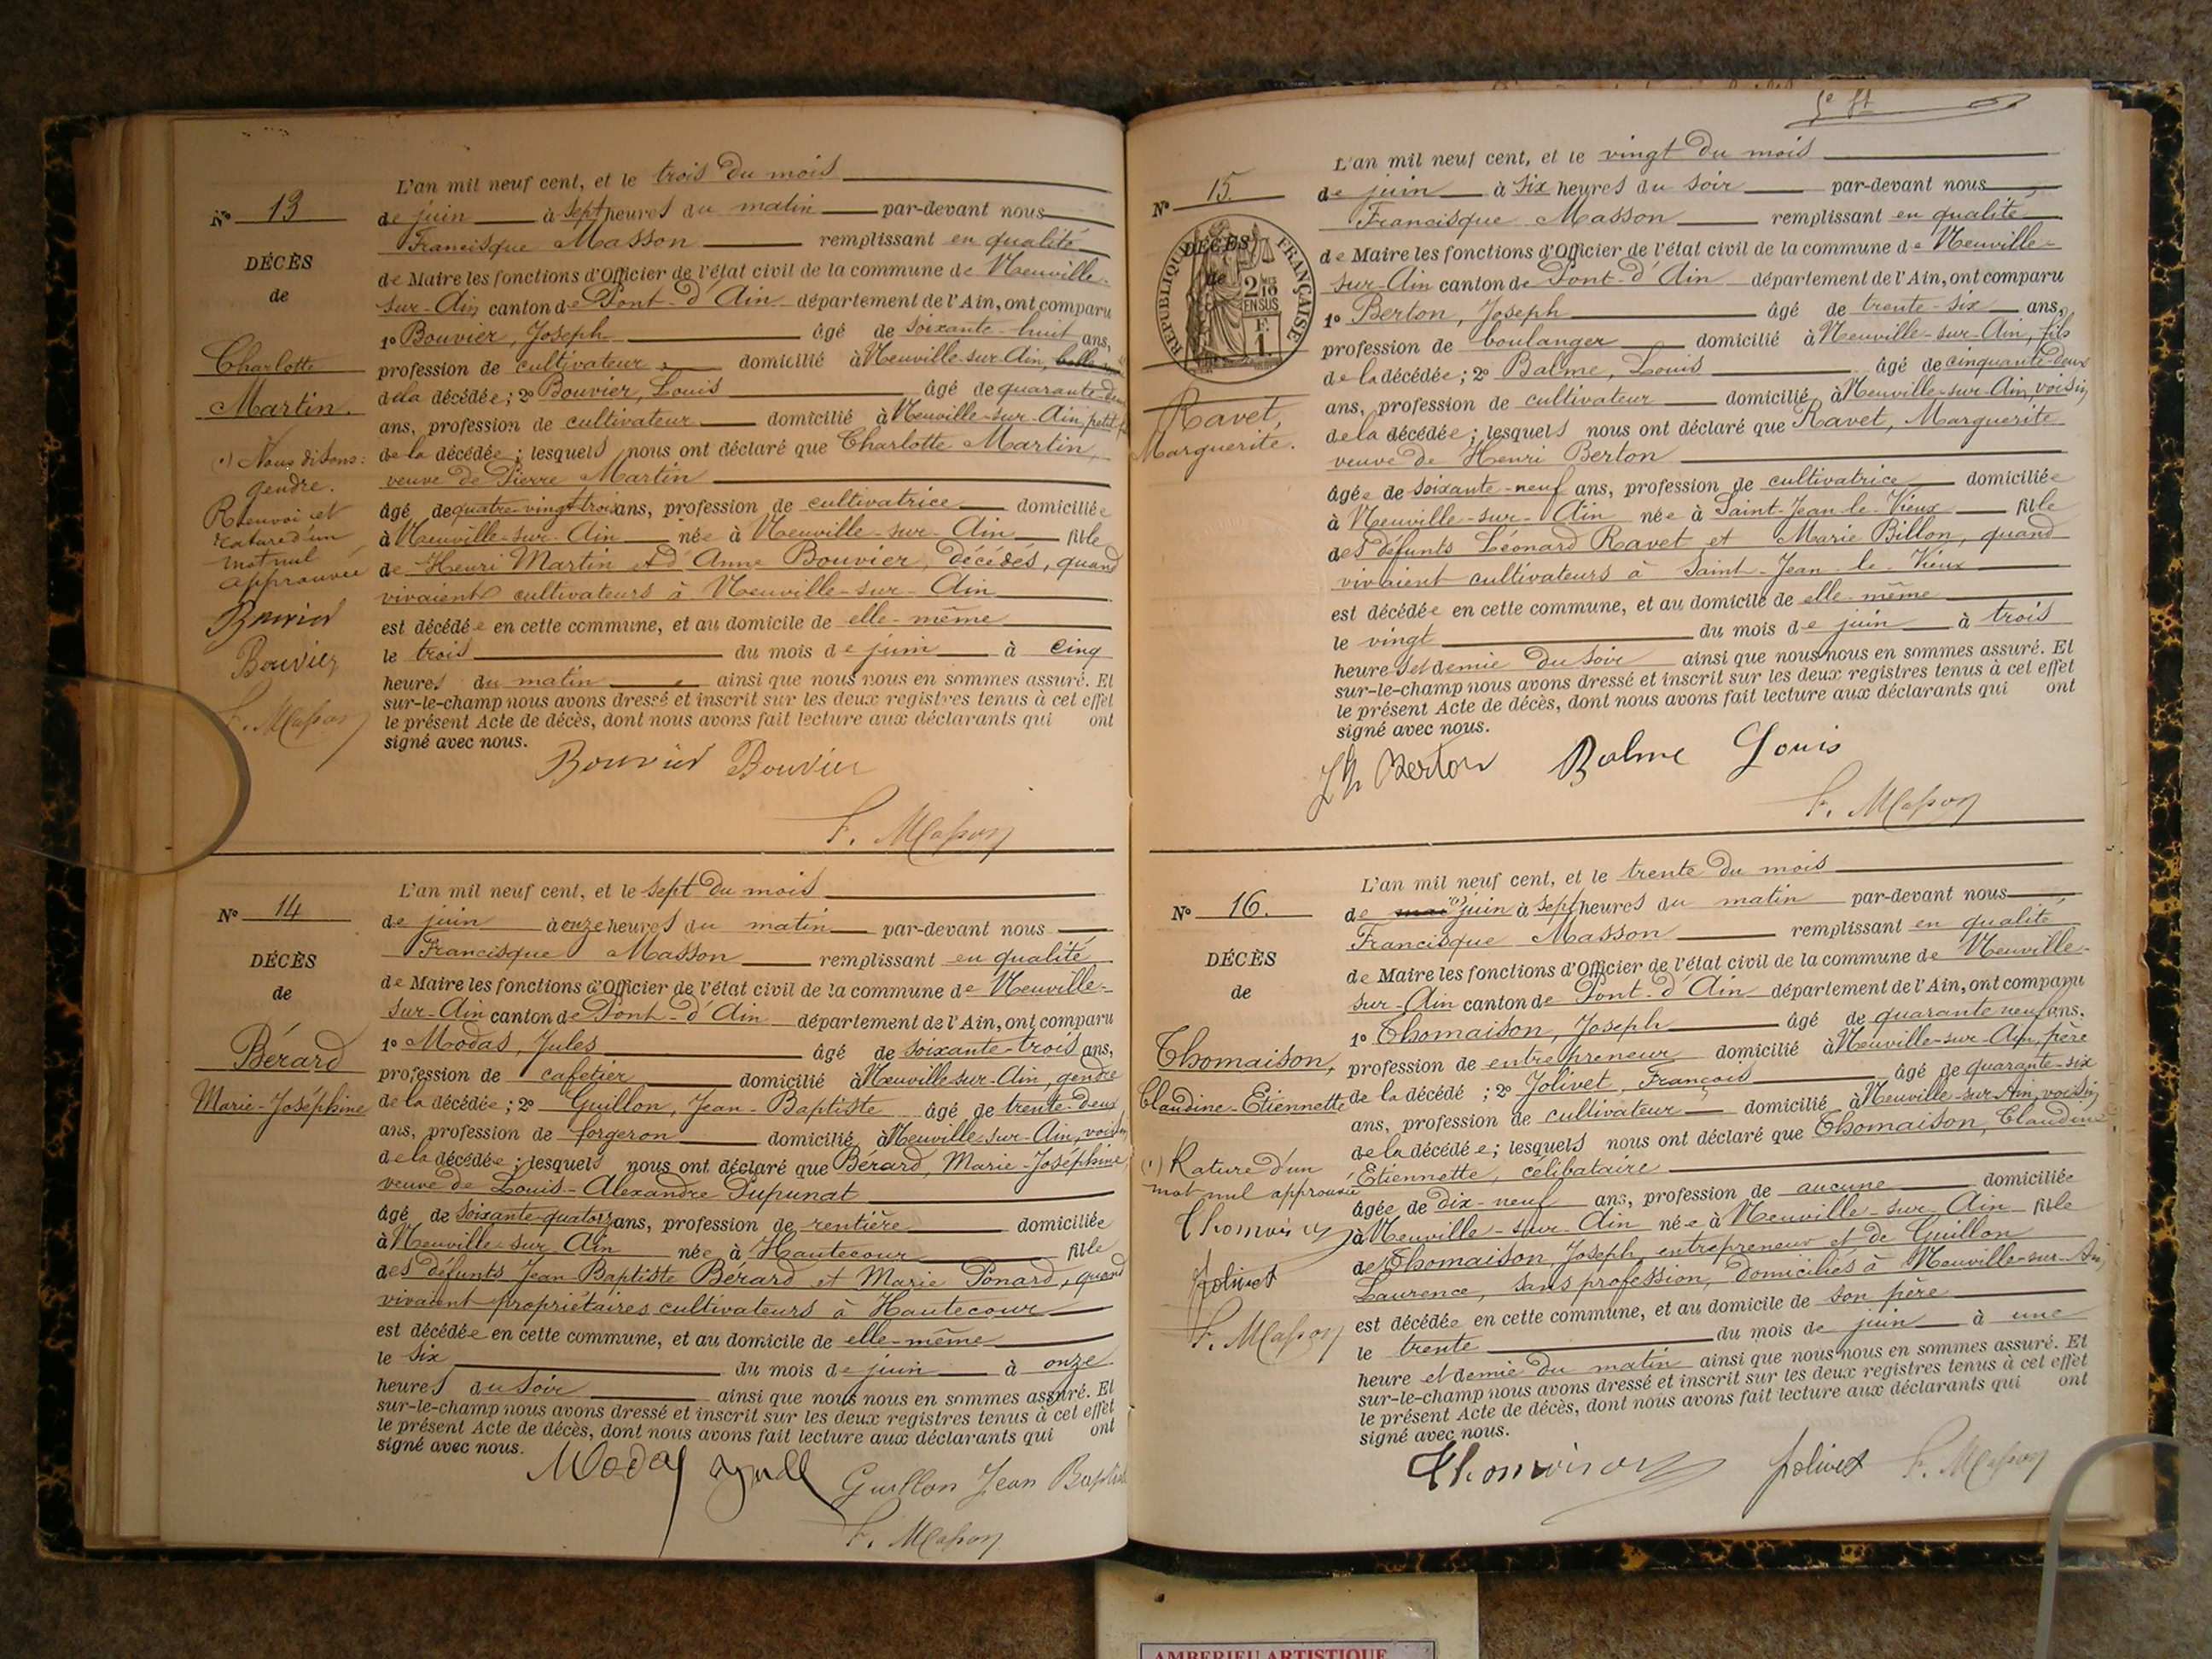 L'an mil neuf cent, et le trois du mois
N° 13
de juin à sept heures du matin par-devant nous
Francisque Masson remplissant en qualité
DÉCÈS
de
de Maire les fonctions d'Officier de l'état civil de la commune de Neuville-
sur-Ain canton de Pont-d'Ain département de l'Ain, ont comparu
1° Bouvier, Joseph âgé de soixante-huit ans,
Charlotte
Martin.
profession de cultivateur domicilié à Neuville-sur-Ain,
de la décédée; 2° Bouvier, Louis âgé de quarante-deux
ans, profession de cultivateur domicilié à Neuville-sur-Ain, petit-
de la décédée; lesquels nous ont déclaré que Charlotte Martin,
veuve de Pierre Martin
âgé de quatre-vingt-trois ans, profession de cultivatrice domiciliée
à Neuville-sur-Ain née à Neuville-sur-Ain fille
de Henri Martin et d'Anne Bouvier, décédés, quand
vivaient cultivateurs à Neuville-sur-Ain
est décédée en cette commune, et au domicile de elle-même
le trois du mois de juin à cinq
heures du matin ainsi que nous nous en sommes assuré. Et
sur-le-champ nous avons dressé et inscrit sur les deux registres tenus à cet effet
le présent Acte de décès, dont nous avons fait lecture aux déclarants qui ont
signé avec nous.
(1) Nous disons:
gendre.
Renvoi et
rature d'un
mot nul
approuvée
Bouvier
Bouvier
F. Masson
Bouvier Bouvier
F. Masson
L'an mil neuf cent, et le sept du mois
N° 14
de juin à onze heures du matin par-devant nous
Francisque Masson remplissant en qualité
DÉCÈS
de
de Maire les fonctions d'Officier de l'état civil de la commune de Neuville-
sur-Ain canton de Pont-d'Ain département de l'Ain, ont comparu
Bérard
Marie-Joséphine
1° Modas, Jules âgé de soixante-trois ans,
profession de cafetier domicilié à Neuville-sur-Ain, gendre
de la décédée; 2° Guillon, Jean-Baptiste âgé de trente-deux
ans, profession de forgeron domicilié à Neuville-sur-Ain, voisin
de la décédée; lesquels nous ont déclaré que Bérard, Marie-Joséphine
veuve de Louis-Alexandre Pupunat
âgé de soixante-quatorze ans, profession de rentière domiciliée
à Neuville-sur-Ain née à Hautecour fille
des défunts Jean-Baptiste Bérard et Marie Ponard, quand
vivaient propriétaires cultivateurs à Hautecour
est décédée en cette commune, et au domicile de elle-même
le six du mois de juin à onze
heures du soir ainsi que nous nous en sommes assuré. Et
sur-le-champ nous avons dressé et inscrit sur les deux registres tenus à cet effet
le présent Acte de décès, dont nous avons fait lecture aux déclarants qui ont
signé avec nous.
Modas Guillon Jean Baptiste
F. Masson
L'an mil neuf cent, et le vingt du mois
N° 15.
de juin à six heures du soir par-devant nous
Francisque Masson remplissant en qualité
DÉCÈS
de
RÉPUBLIQUE FRANÇAISE
2/10 EN SUS
F. 1.
de Maire les fonctions d'Officier de l'état civil de la commune de Neuville-
sur-Ain canton de Pont-d'Ain département de l'Ain, ont comparu
1° Berton, Joseph âgé de trente-six ans,
profession de boulanger domicilié à Neuville-sur-Ain, fils
de la décédée; 2° Balme, Louis âgé de cinquante-deux
Ravet,
Marguerite.
ans, profession de cultivateur domicilié à Neuville-sur-Ain, voisin
de la décédée; lesquels nous ont déclaré que Ravet, Marguerite
veuve de Henri Berton
âgée de soixante-neuf ans, profession de cultivatrice domiciliée
à Neuville-sur-Ain née à Saint-Jean-le-Vieux fille
des défunts Léonard Ravet et Marie Billon, quand
vivaient cultivateurs à Saint-Jean-le-Vieux
est décédée en cette commune, et au domicile de elle-même
le vingt du mois de juin à trois
heures et demie du soir ainsi que nous nous en sommes assuré. Et
sur-le-champ nous avons dressé et inscrit sur les deux registres tenus à cet effet
le présent Acte de décès, dont nous avons fait lecture aux déclarants qui ont
signé avec nous.
Jh Berton Balme Louis
F. Masson
L'an mil neuf cent, et le trente du mois
N° 16.
de mai (1) juin à sept heures du matin par-devant nous
Francisque Masson remplissant en qualité
DÉCÈS
de
de Maire les fonctions d'Officier de l'état civil de la commune de Neuville-
sur-Ain canton de Pont-d'Ain département de l'Ain, ont comparu
1° Thomaison, Joseph âgé de quarante neuf ans,
Thomaison,
Claudine-Etiennette
profession de entrepreneur domicilié à Neuville-sur-Ain, père
de la décédé; 2° Jolivet, François âgé de quarante-six
ans, profession de cultivateur domicilié à Neuville-sur-Ain, voisin
de la décédée; lesquels nous ont déclaré que Thomaison, Claudine
Etiennette, célibataire
âgée de dix-neuf ans, profession de aucune domiciliée
à Neuville-sur-Ain née à Neuville-sur-Ain fille
de Thomaison, Joseph, entrepreneur et de Guillon
Laurence, sans profession, domiciliés à Neuville-sur-Ain,
est décédée en cette commune, et au domicile de son père
le trente du mois de juin à une
heure et demie du matin ainsi que nous nous en sommes assuré. Et
sur-le-champ nous avons dressé et inscrit sur les deux registres tenus à cet effet
le présent Acte de décès, dont nous avons fait lecture aux déclarants qui ont
signé avec nous.
(1) Rature d'un
mot nul approuvée
Thomaison
Jolivet
F. Masson
Thomaison Jolivet F. Masson
AMBERIEU ARTISTIQUE